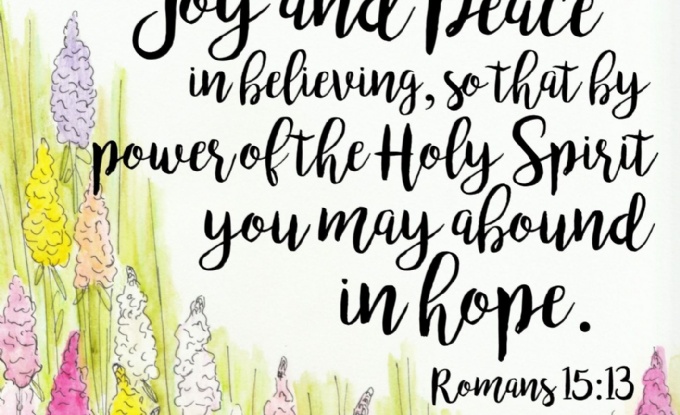 Joy and Peace
in believing, so that by
power of the Holy Spirit
you may abound
in hope.
Romans 15:13